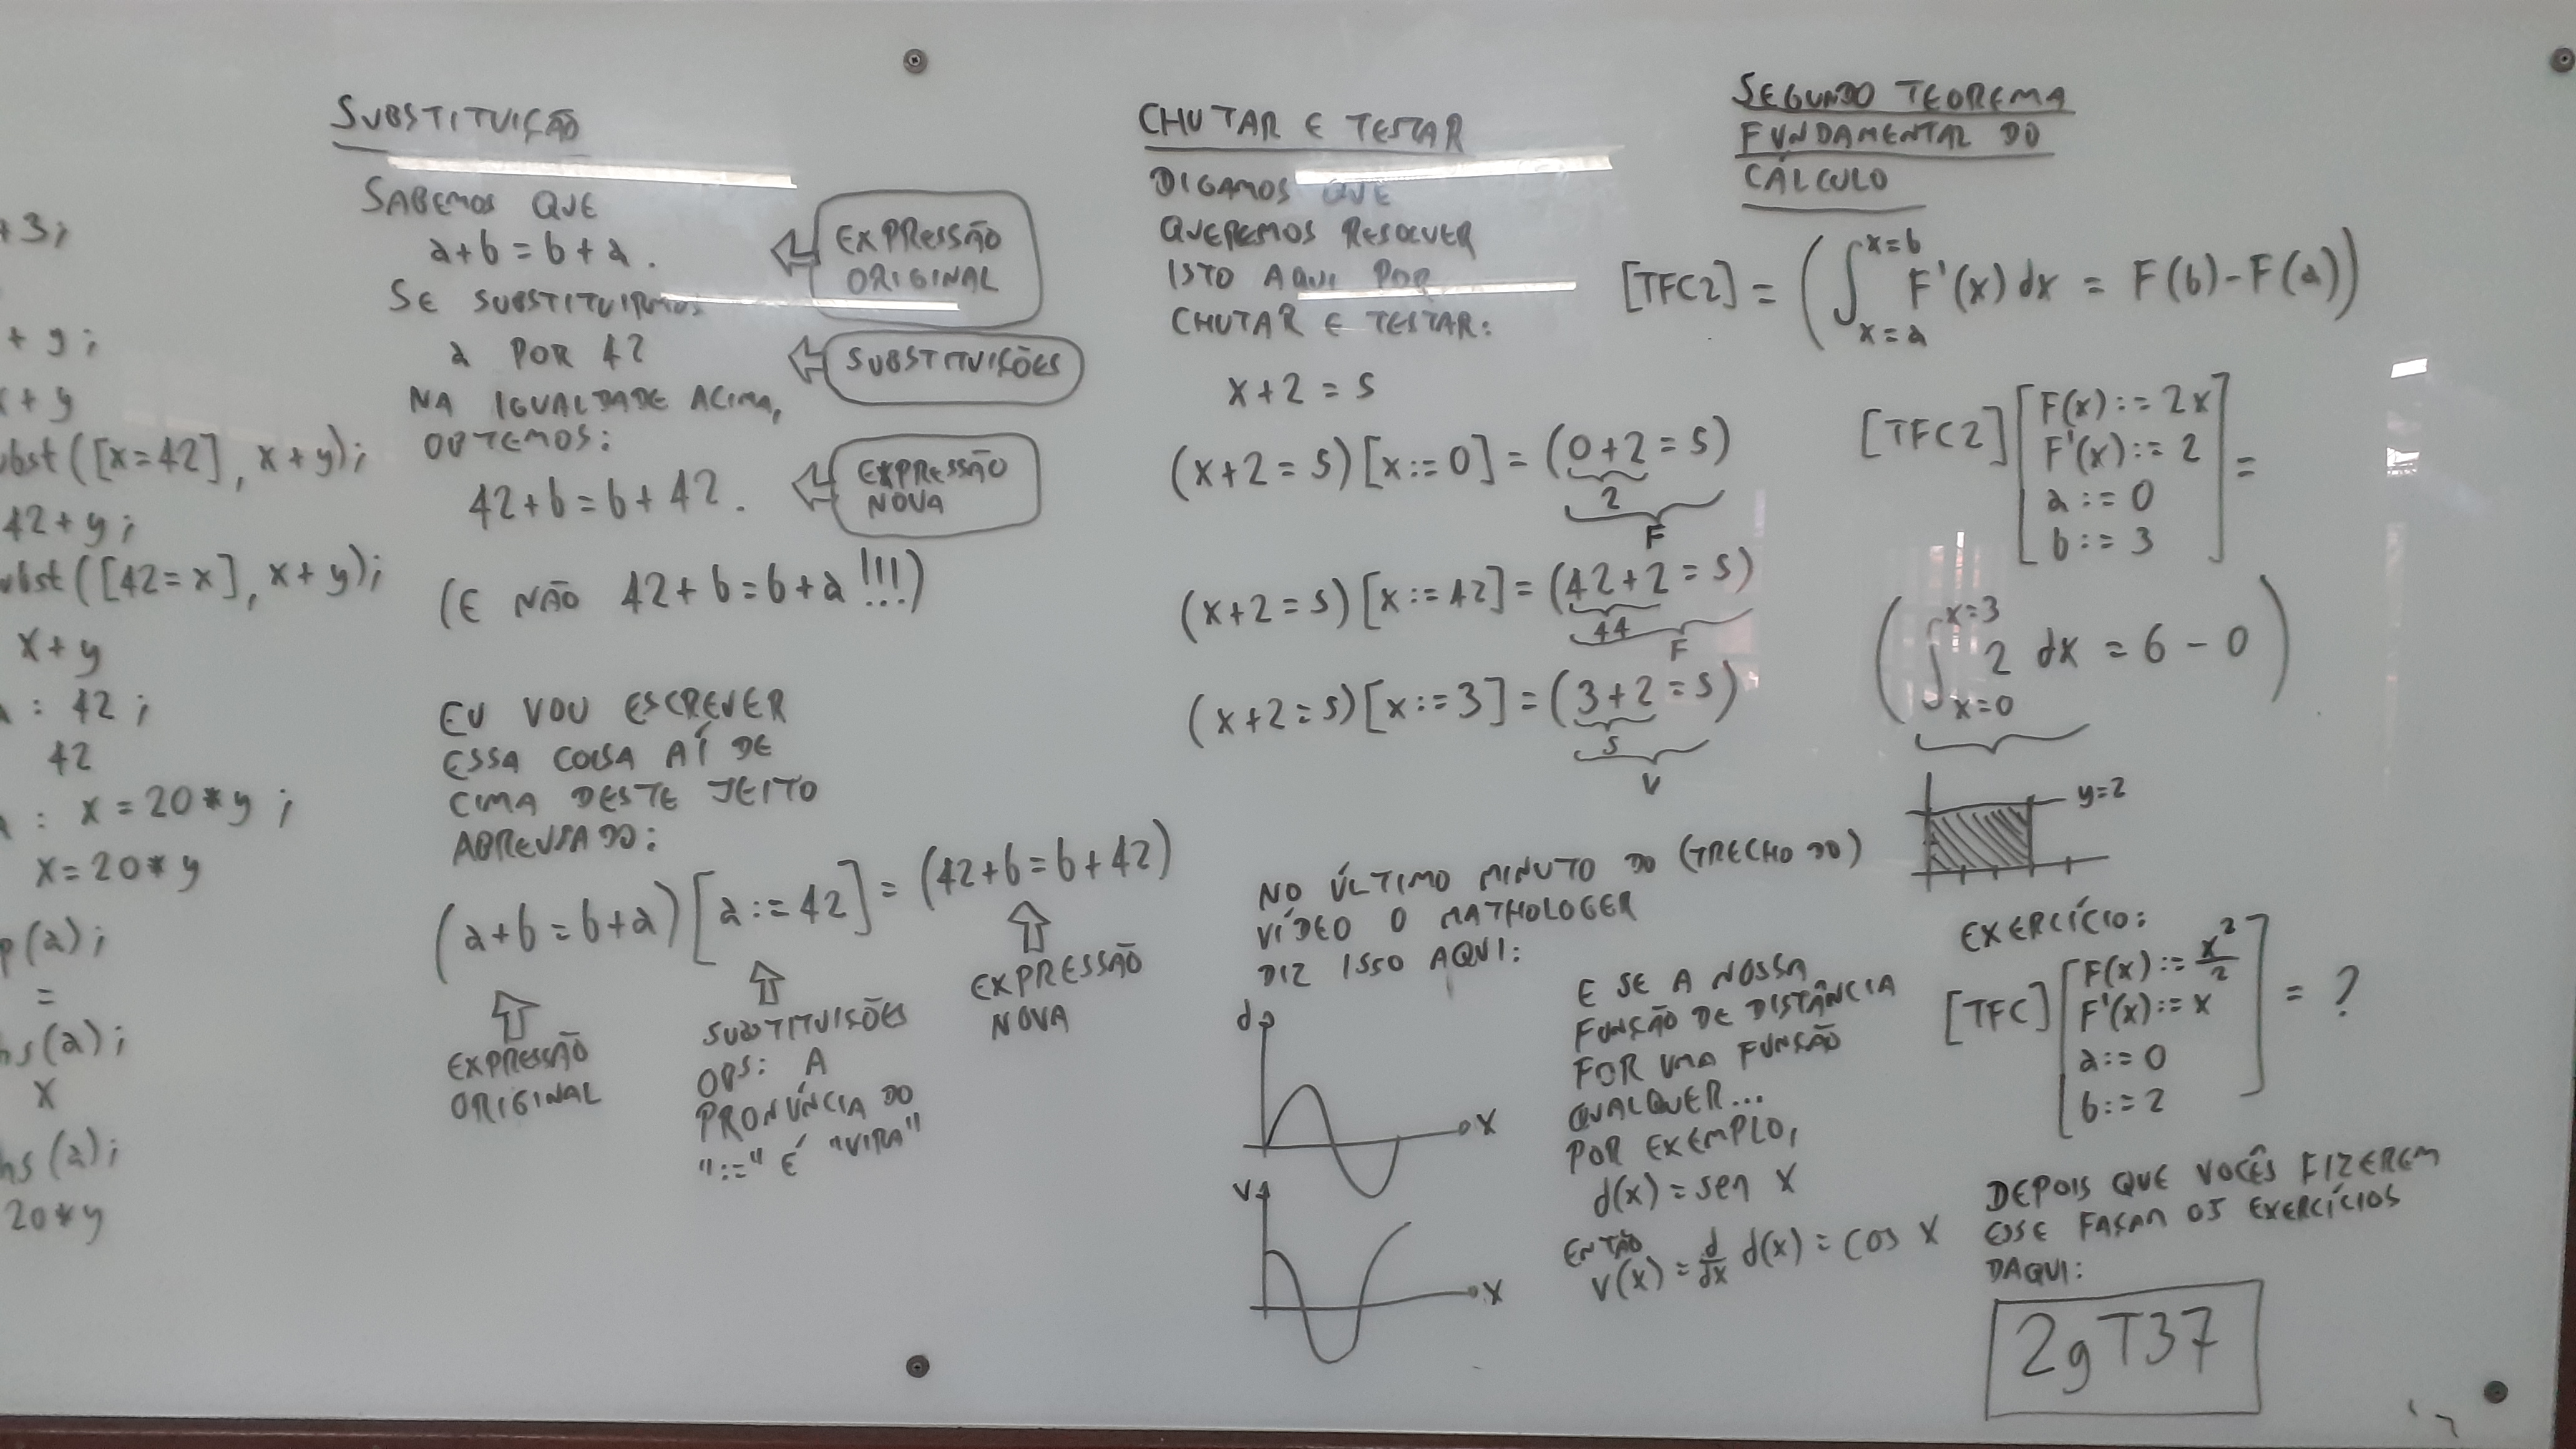 +3;
+ y;
x+y
ubst([x=42], x+y);
42+y;
ubst([42=x], x+y);
x+y
: 42;
42
: x=20*y;
x=20*y
p(a);
=
hs(a);
x
hs(a);
20*y
SUBSTITUIÇÃO
SABEMOS QUE
a+b=b+a.
SE SUBSTITUIRMOS
a POR 42
NA IGUALDADE ACIMA,
OBTEMOS:
42+b=b+42.
(E NÃO 42+b=b+a!!!)
EXPRESSÃO
ORIGINAL
SUBSTITUIÇÕES
EXPRESSÃO
NOVA
EU VOU ESCREVER
ESSA COISA AÍ DE
CIMA DESTE JEITO
ABREVIADO:
(a+b=b+a)[a:=42]=(42+b=b+42)
EXPRESSÃO
ORIGINAL
SUBSTITUIÇÕES
OBS: A
PRONÚNCIA DO
":=" É "VIRA"
EXPRESSÃO
NOVA
CHUTAR E TESTAR
DIGAMOS QUE
QUEREMOS RESOLVER
ISTO AQUI POR
CHUTAR E TESTAR:
x+2=5
(x+2=5)[x:=0]=(0+2=5)
2
F
(x+2=5)[x:=42]=(42+2=5)
44
F
(x+2=5)[x:=3]=(3+2=5)
5
V
NO ÚLTIMO MINUTO DO (TRECHO DO)
VÍDEO O MATHOLOGER
DIZ ISSO AQUI:
d
x
v
x
E SE A NOSSA
FUNÇÃO DE DISTÂNCIA
FOR UMA FUNÇÃO
QUALQUER...
POR EXEMPLO,
d(x)=sen x
ENTÃO
v(x)=d/dx d(x)=cos x
SEGUNDO TEOREMA
FUNDAMENTAL DO
CÁLCULO
[TFC2]=(∫_{x=a}^{x=b} F'(x)dx = F(b)-F(a))
[TFC2][F(x):=2x
F'(x):=2
a:=0
b:=3] =
(∫_{x=0}^{x=3} 2 dx = 6-0)
y=2
EXERCÍCIO:
[TFC][F(x):=x²/2
F'(x):=x
a:=0
b:=2] = ?
DEPOIS QUE VOCÊS FIZEREM
ESSE FAÇAM OS EXERCÍCIOS
DAQUI:
2gT37